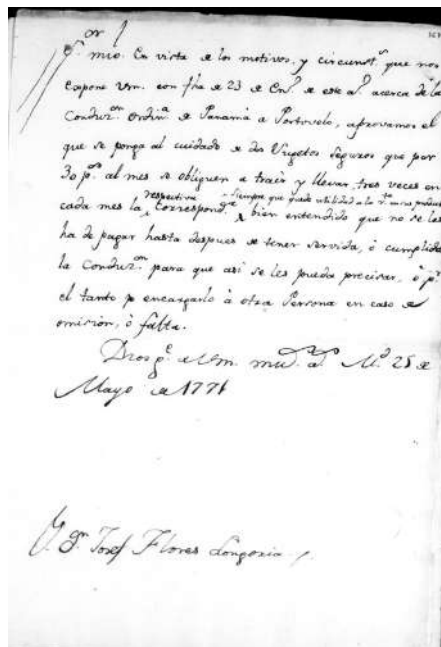 S.or mio. En vista de los motivos, y circunst.s que nos
expone Vm. con fha de 23 de En.o de este a.o acerca de la
Conduz.on ordin.a de Panamá a Portovelo, aprovamos el
que se ponga al cuidado de dos Sugetos seguros que por
30 p.os al mes se obliguen a traér y llevar, tres veces en
respectiva siempre que quede utilidad a la
cada mes la Correspond.a bien entendido que no se les
ha de pagar hasta despues de tener servida, ó cumplida
la Conduz.on para que asi se les pueda precisar, ó p.r
el tanto p encargarlo á otra Persona en caso de
omision, ó falta.
Dios g.e a Vm. mu.s a.s M.d 25 de
Mayo de 1771
S. D.n Josef Flores Longoria